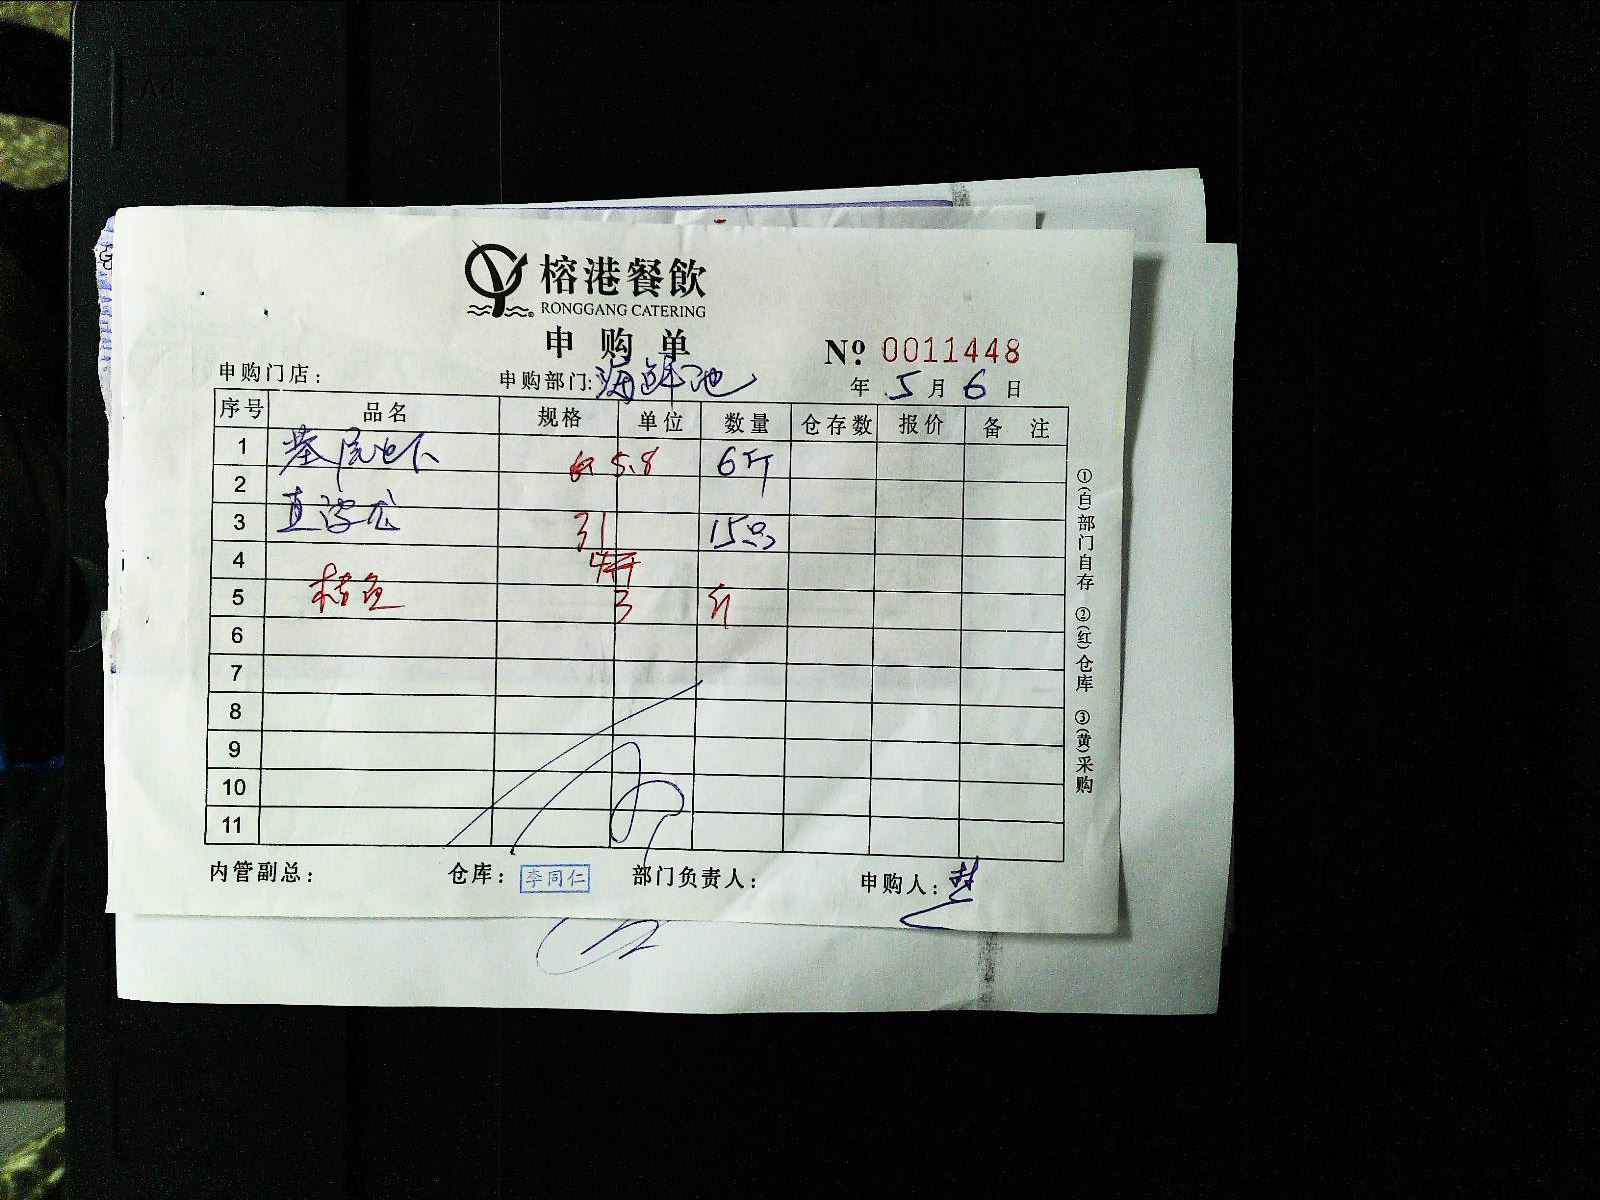 榕港餐飲
RONGGANG CATERING
申购单
Nº 0011448
申购门店： 申购部门:海鲜池 年 5 月 6 日
序号 品名 规格 单位 数量 仓存数 报价 备 注
1 基尾虾 5.8 6斤
2
3 直波龙 31 15只
4
5 桂鱼 3 斤
6
7
8
9
10
11
内管副总： 仓库：李同仁 部门负责人： 申购人：
①(白)部门自存 ②(红)仓库 ③(黄)采购
A4